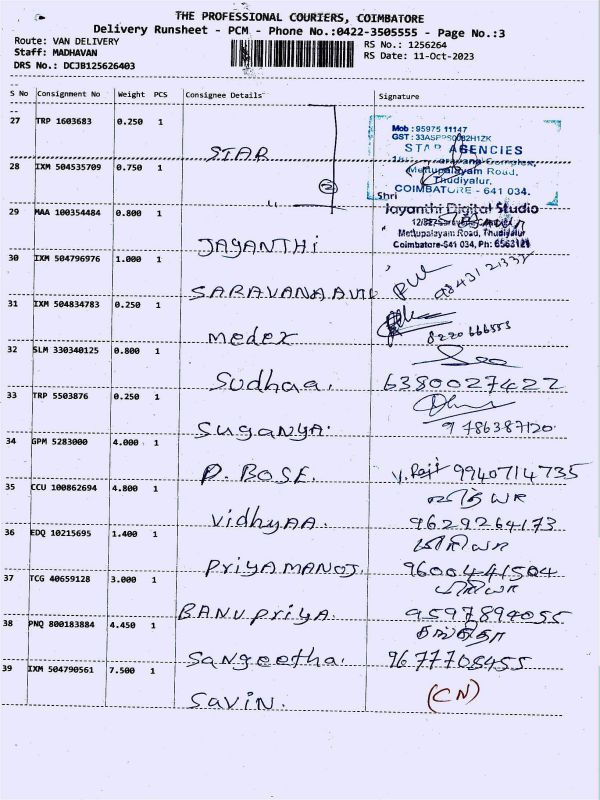 THE PROFESSIONAL COURIERS, COIMBATORE
Delivery Runsheet - PCM - Phone No.:0422-3505555 - Page No.:3
Route: VAN DELIVERY
RS No.: 1256264
Staff: MADHAVAN
RS Date: 11-Oct-2023
DRS No.: DCJB125626403
S No Consignment No Weight PCS Consignee Details Signature
27 TRP 1603683 0.250 1
Mob : 95975 11147
STAR
STAR AGENCIES
Mettupalayam Road,
Thudiyalur,
COIMBATORE - 641 034.
28 IXM 504535709 0.750 1
" 2
Shri
29 MAA 100354484 0.800 1
Jayanthi Digital Studio
Mettupalayam Road, Thudiyalur
Coimbatore-641 034, Ph: 6563121
JAYANTHi
30 IXM 504796976 1.000 1
SARAVANA
31 IXM 504834783 0.250 1
medex
8220666553
32 SLM 330340125 0.800 1
Sudhaa. 6380027422
33 TRP 5503876 0.250 1
Suganya. 9786387120
34 GPM 5283000 4.000 1
P. BOSE. 9940714735
35 CCU 100862694 4.800 1
வித்யா
vidhyAA. 9629264173
36 EDQ 10215695 1.400 1
பிரியா
PriyA MANOJ. 9600441504
37 TCG 40659128 3.000 1
பிரியா
BANU PriyA. 9597894055
38 PNQ 800183884 4.450 1
சங்கீதா
Sangeetha. 9677708455
39 IXM 504790561 7.500 1
SAVIN. (CN)